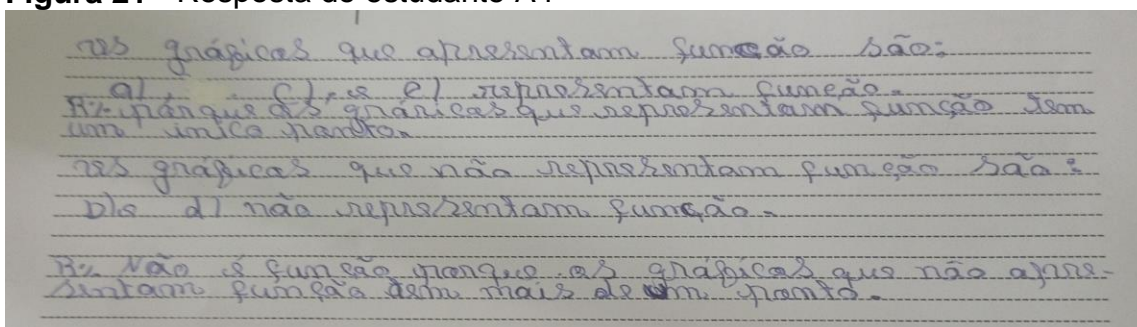 Figura 21 - Resposta do estudante A4
os gráficos que apresentam função são:
a) c), e e) representam função.
R:. porque os gráficos que representam função tem
um único ponto.
os gráficos que não representam função são:
b) e d) não representam função.
R:. Não é função porque os gráficos que não apre-
sentam função tem mais de um ponto.